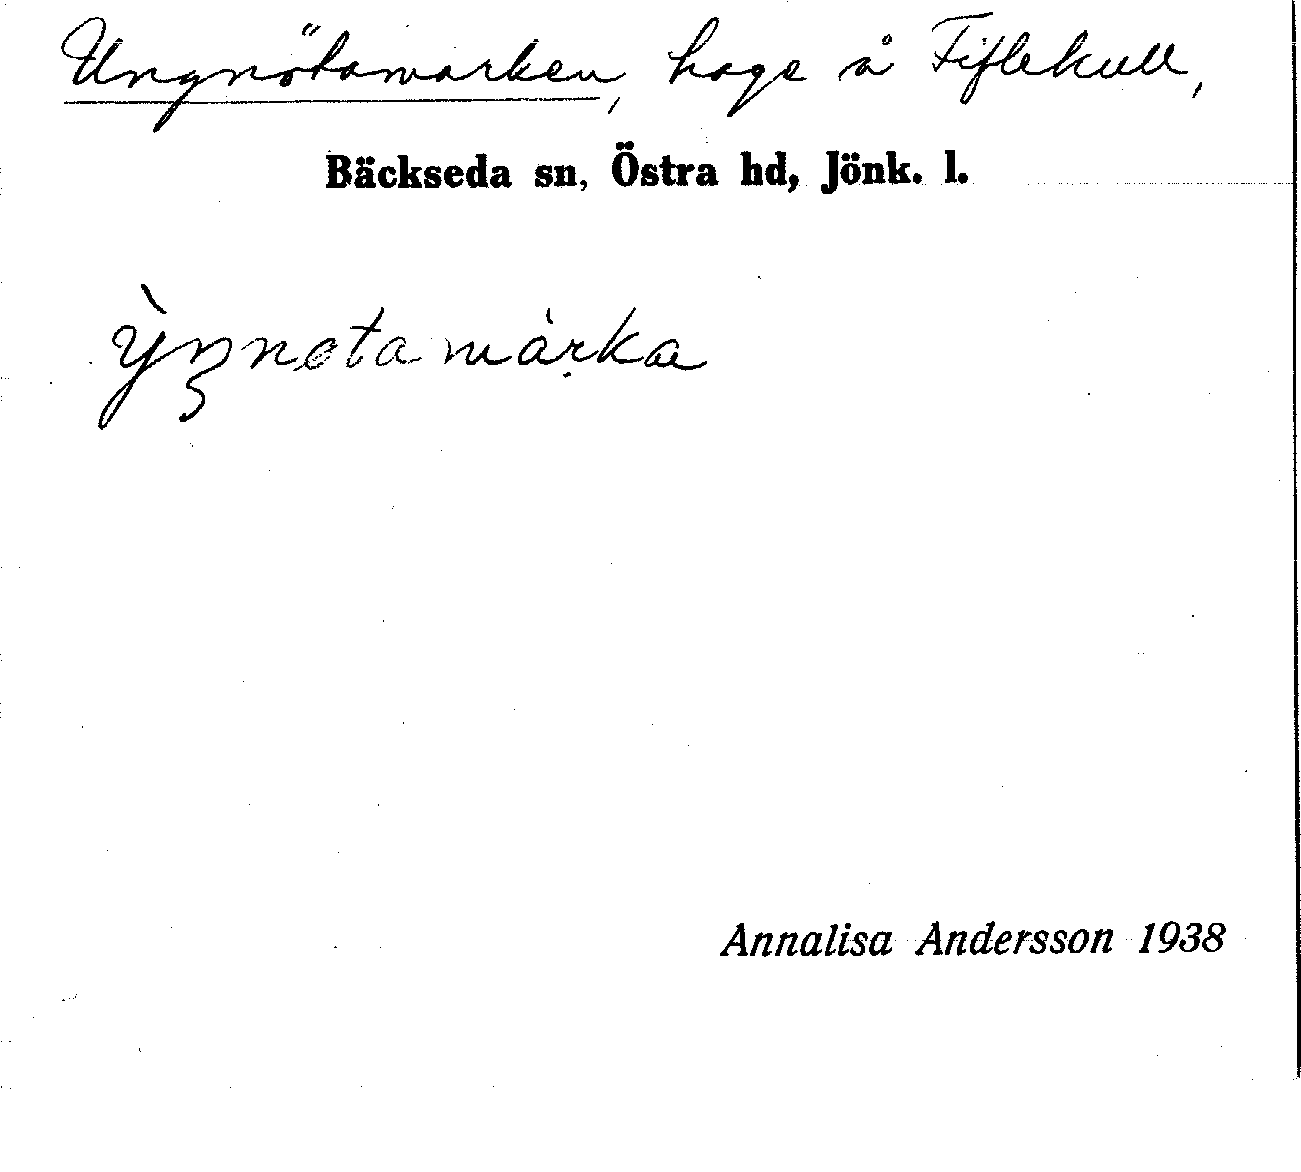 Ungnötamarken, hage å Fiflekull,
Bäckseda sn, Östra hd, Jönk. l.
Annalisa Andersson 1938